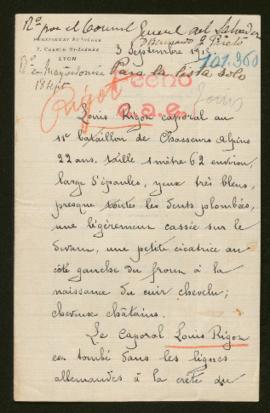 Rº por el Consul General del Salvador
7, Cours St-Jérôme
LYON
3 Septembre 1915
101.960
Para la lista solo
Rigot
ECHO
Louis Rigon caporal au
11e bataillon de Chasseurs Alpins
22 ans, taille 1 mètre 62 environ,
large d'épaules, yeux très bleus,
presque toutes les dents plombées,
une légèrement cassée sur le
devant, une petite cicatrice au
côté gauche du front à la
naissance du cuir chevelu;
cheveux châtains.
Le Caporal Louis Rigon
est tombé dans les lignes
allemandes à la crête du